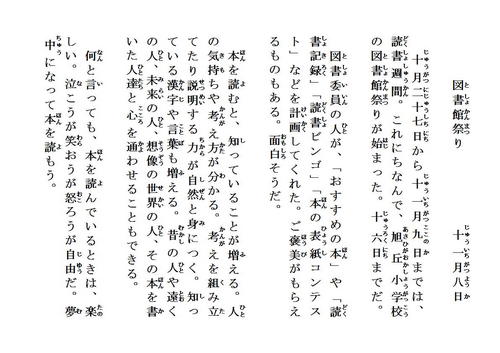 図書館祭り　十一月八日
十月二十七日から十一月九日までは、
読書週間。これにちなんで、旭丘小学校
の図書館祭りが始まった。十六日までだ。
図書委員の人が、「おすすめの本」や「読
書記録」「読書ビンゴ」「本の表紙コンテス
ト」などを計画してくれた。ご褒美がもらえ
るものもある。面白そうだ。
本を読むと、知っていることが増える。人
の気持ちや考え方が分かる。考えを組み立
てたり説明する力が自然と身につく。知っ
ている漢字や言葉も増える。昔の人や遠く
の人、未来の人、想像の世界の人、その本を書
いた人達と心を通わせることもできる。
何と言っても、本を読んでいるときは、楽
しい。泣こうが笑おうが怒ろうが自由だ。夢
中になって本を読もう。